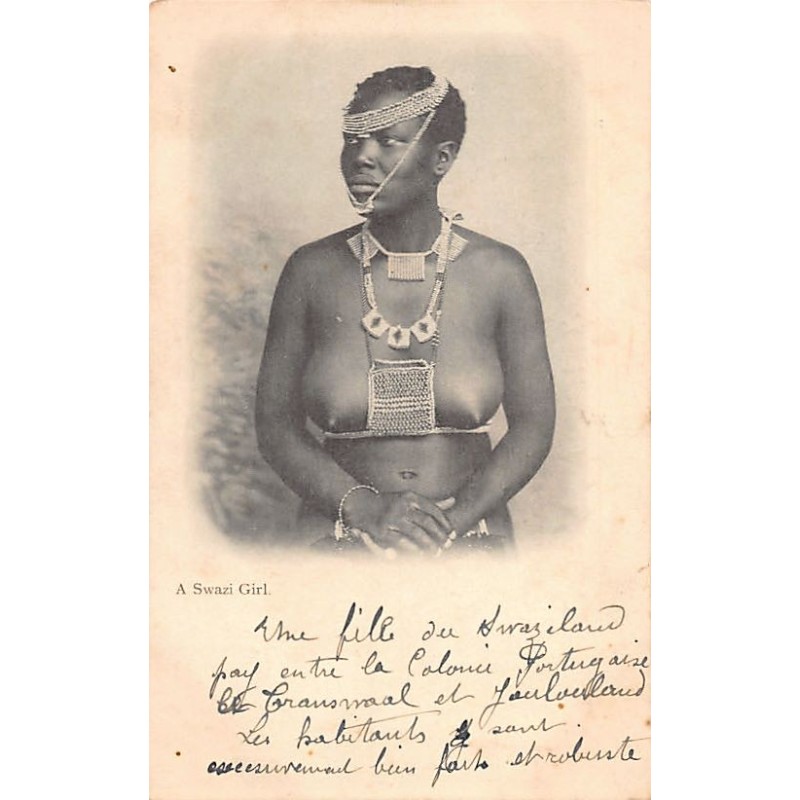 A Swazi Girl.
Une fille du Swaziland
pay entre la Colonie Portugaise
le Transwaal et Zoulouland
Les habitants y sont
excessivemend bien forts et robuste